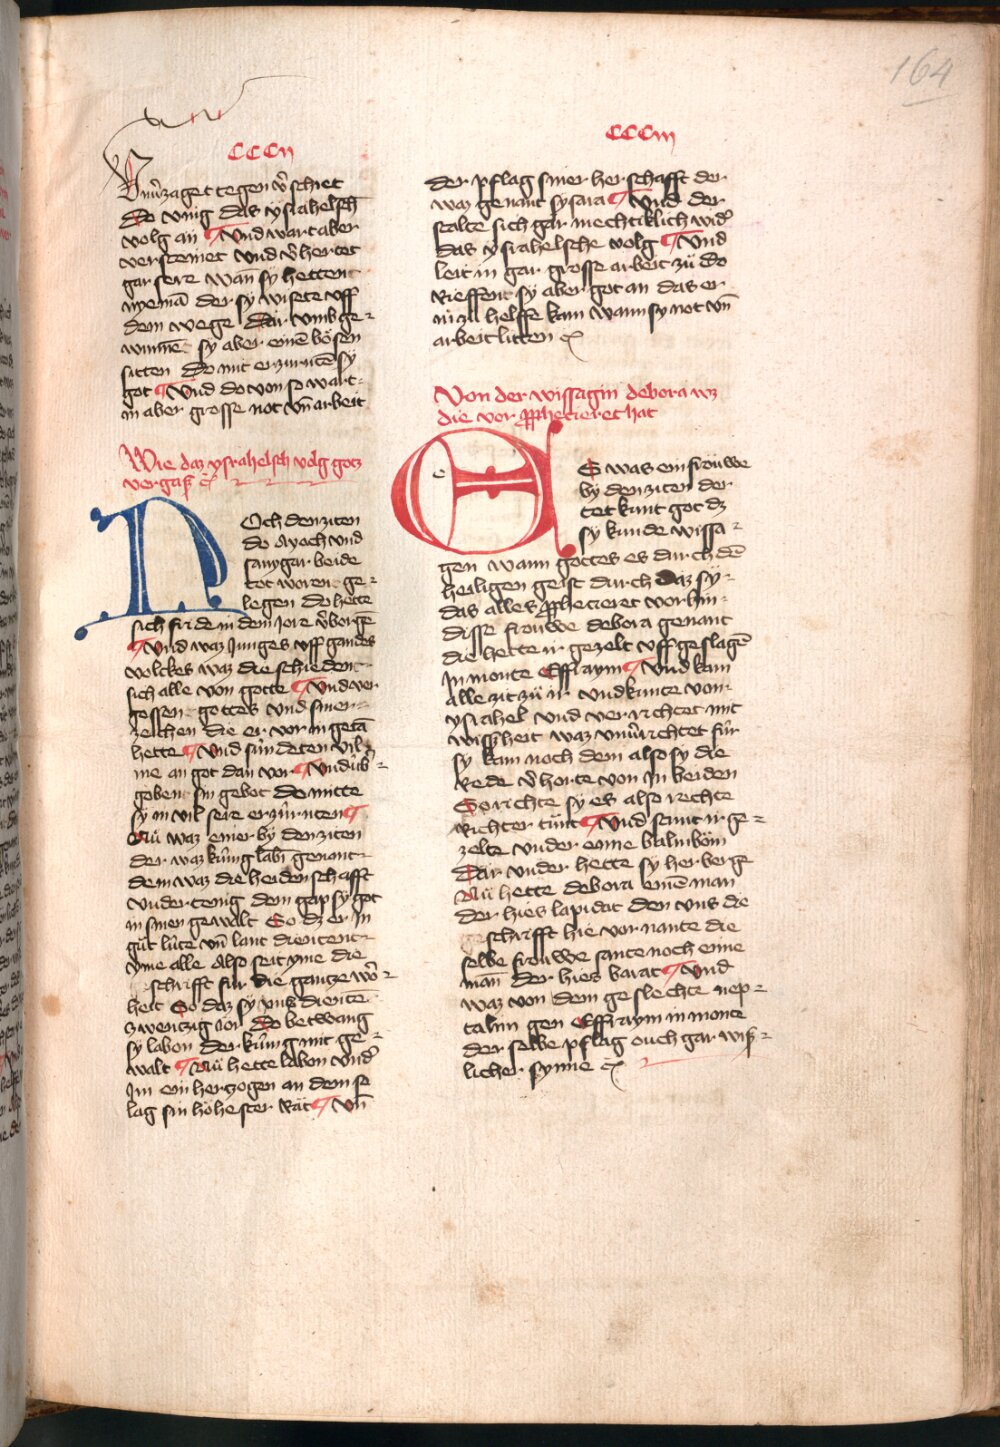 164
CCCII
Vnuͦzaget tegen v̾schiet
Do vnig das ysrahelsch
volg an ¶ Vnd wart aber
versteinet vnd v̾hertet
gar sere wan̄ sy hetten
nyemā der sy wisete vff
dem wege Dar vmb ge⸗
wun̄ē sy aber einē boͤsen
sitten do mit erzurntē sy
got ¶ Vnd do von so wart
in aber grosse not vn̄ arbeit
Wie daz ysrahelsch volg gotz
vergaß ⁊c
NOch den ziten
do Ayoth vnd
sanygar beide
tot woren ge⸗
legen do hette
sich fride in dem Jore v̾bergē
¶ Vnd waz Junges vff gandes
volckes waz die schiedent
sich alle von gotte ¶ Vnd ver
gessen gottes vnd siner
zeichen die er vor in getā
hette ¶ Vnd sündeten vil
me an got dan vor ¶ Vnd üb̾⸗
goben sin gebot do mitte
sy in vil sere erzürnten ¶
Nü waz einer by den ziten
der waz künig labin genant
dem waz die heidenschafft
vndertenig dem gap sy got
in sinen gewalt So dz er In
guͦt lüte vn̄ lant dientent
yme alle Also seit yme die
schrifft für die gantze wor⸗
heit So daz sy yme dientē
zwentzig Jor Do betwang
sy labon der künig mit ge⸗
walt ¶ Nü hette labon vnd̾
Im ein hertzogen an dem se
lag sin hoͤhester Rat ¶ Vn̄
CCCIII
der pflag siner herschafft der
waz genant sysara ¶ Vnd der
stalte sich gar mechtiklich wid̾
das ysrahelsche volg ¶ Vnd
leit in gar grosse arbeit zuͦ do
Rieffent sy aber got an das er
in zuͦ helffe kam wann sy not vn̄
arbeit litten ⁊c
Von der wissagin debora wz
die vor prophecieret hat
ES was ein frouwe
by den ziten der
tet kunt got dz
sy kunde wissa⸗
gen wann gottes es durch dē
heiligen geist durch daz sy
das alles prophecieret vor hin
Disse frouwe debora genant
die hette ir gezelt vff geslagē
In monte Effraym ¶ Vnd kam
alle zit zuͦ ir vnd kunte von
ysrahel vnd verrichtet mit
wißheit waz vnuͦrichtet für
sy kam noch dem also sy die
Rede v̾horte von In beiden
So richte sy es also rechte
Richter tuͦnt ¶ Vnd stunt ir ge⸗
zelte vnder eime balmboͮm
Dar vnder hette sy herberge
Nü hette debora einē man
der hies lapidat den vns die
geschrifft hie vor nante die
selbe frouwe sante noch eime
man̄ der hies barat ¶ Vnd
waz von dem geslechte nep⸗
talim gen Effraym in monte
der selbe pflag ouch gar wiß⸗
licher synne ⁊c